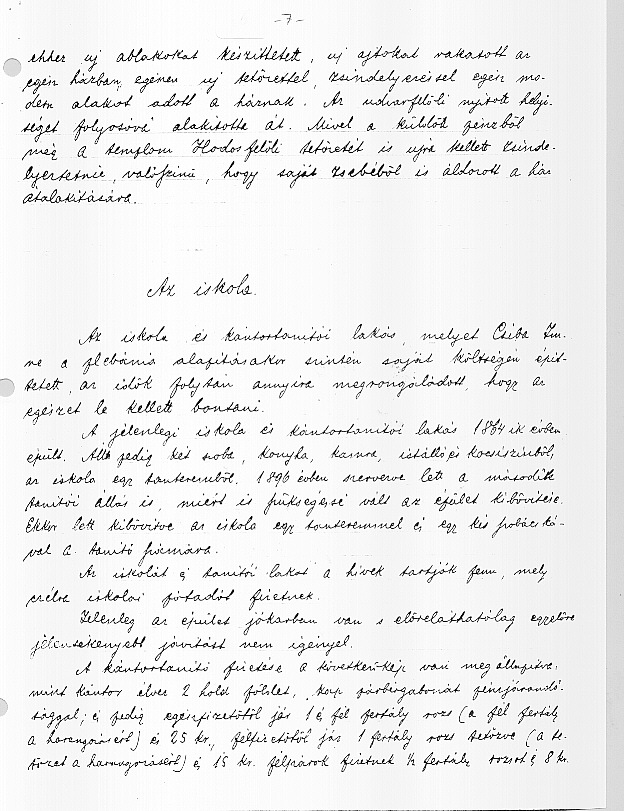 -7-
ehhez uj ablakokat készittetett, uj ajtókat vakatott az
egész házban, egészen uj tetőzettel, zsindelyezéssel egész mo-
dern alakot adott a háznak. Az udvarfelőli nyitott helyi-
séget folyosóvá alakította át. Mivel a küldött pénzből
még a templom Hodosfelőli tetőzetét is ujra kellett zsinde-
lyeztetnie, valószinü, hogy saját zsebéből is áldozott a ház
átalakitására.
Az iskola.
Az iskola és kántortanitói lakás, melyet Csiba Im-
re a plébánia alapitásakor szintén saját költségén épít-
tetett, az idők folytán annyira megrongálódott, hogy az
egészet le kellett bontani.
A jelenlegi iskola és kántortanitói lakás 1864 ik évben
épült. Áll pedig két szoba, konyha, kamra, istálló és kocsiszinből,
az iskola egy tanteremből. 1896 évben szervezve lett a második
tanitói állás is, miért is szükségessé vált az épület kibővitése.
Ekkor lett kibővitve az iskola egy tanteremmel és egy kis szobács ká-
val a tanitó számára.
Az iskolát és tanitói lakot a hivek tartják fenn, mely
czélra iskolai pótadót fizetnek.
Jelenleg az épület jókarban van s előreláthatólag egyelőre
jelentékenyebb javitást nem igényel.
A kántortanitó fizetése a következőkép van megállapitva:
mint kántor élvez 2 hold földet, kap párbérgabonát pénzjárandó-
sággal; és pedig egészfizetőtől jár 1 és fél fertály rozs (a fél fertály
a harangozásért) és 25 kr., félfizetőtől jár 1 fertály rozs tetőzve (a te-
tőzet a harangozásért) és 15 kr. félpárok fizetnek ½ fertály rozsot és 8 kr.